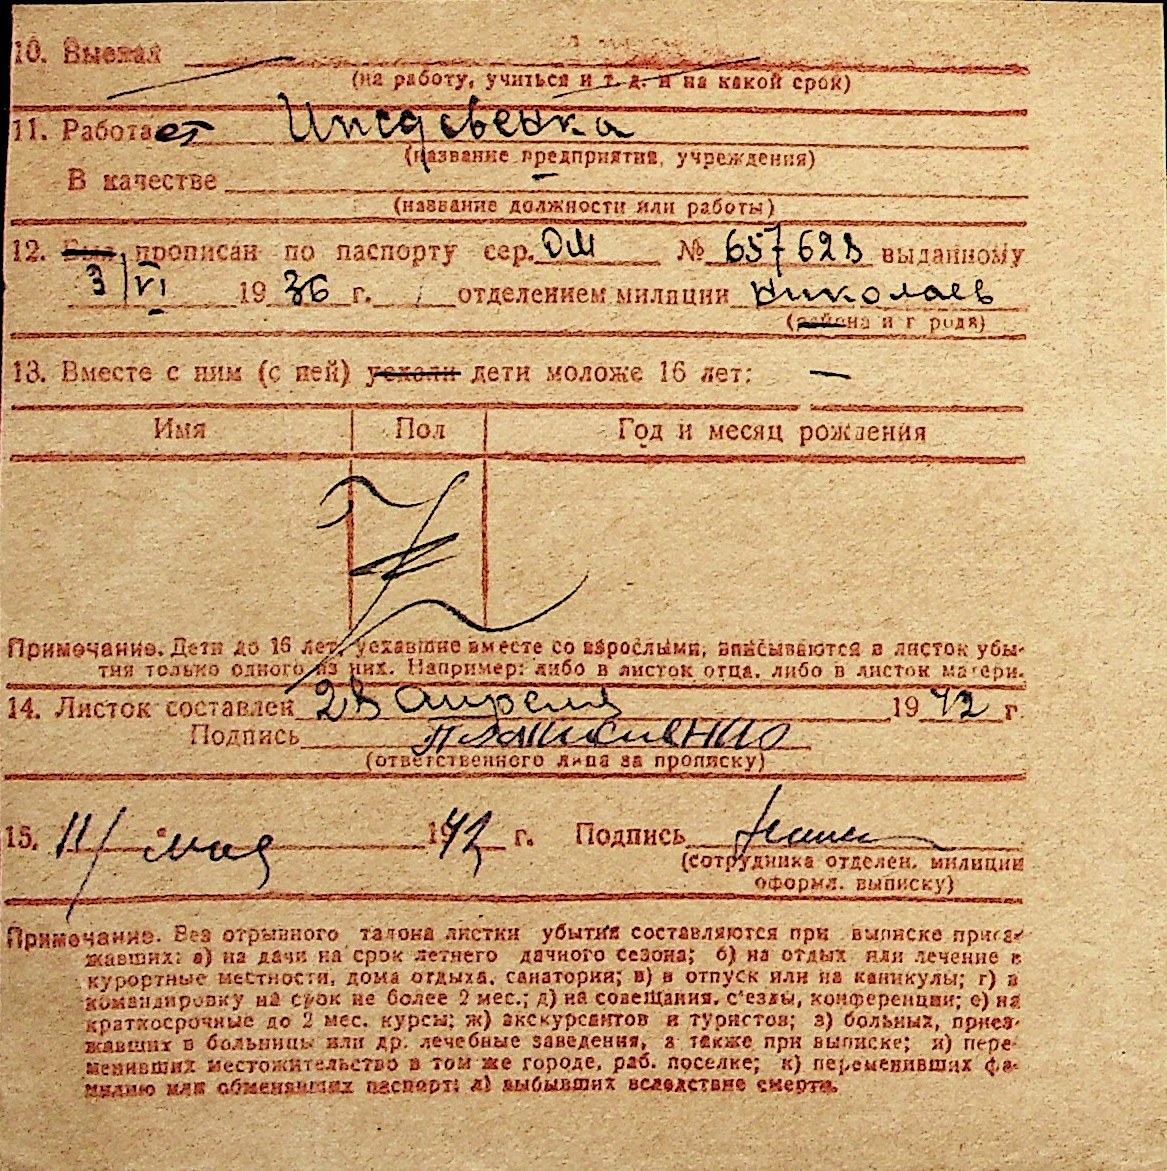 10. Выехал
(на работу, учиться и т. д. и на какой срок)
11. Работает Иждивенка
(название предприятия, учреждения)
В качестве
(название должности или работы)
12. Был прописан по паспорту сер. ОМ № 657628 выданному
3/VI 1936 г. отделением милиции Николаев
(района и города)
13. Вместе с ним (с ней) уехали дети моложе 16 лет: —
Имя Пол Год и месяц рождения
Примечание. Дети до 16 лет, уехавшие вместе со взрослыми, вписываются в листок убы-
тия только одного из них. Например: либо в листок отца, либо в листок матери.
14. Листок составлен 28 апреля 1942 г.
Подпись
(ответственного лица за прописку)
15. 11/ мая 1942 г. Подпись
(сотрудника отделен. милиции
оформл. выписку)
Примечание. Без отрывного талона листки убытия составляются при выписке приез-
жавших: а) на дачи на срок летнего дачного сезона; б) на отдых или лечение в
курортные местности, дома отдыха, санатории; в) в отпуск или на каникулы; г) в
командировку на срок не более 2 мес.; д) на совещания, с'езды, конференции; е) на
краткосрочные до 2 мес. курсы; ж) экскурсантов и туристов; з) больных, приез-
жавших в больницы или др. лечебные заведения, а также при выписке; и) пере-
менивших местожительство в том же городе, раб. поселке; к) переменивших фа-
милию или обменявших паспорт; л) выбывших вследствие смерти.